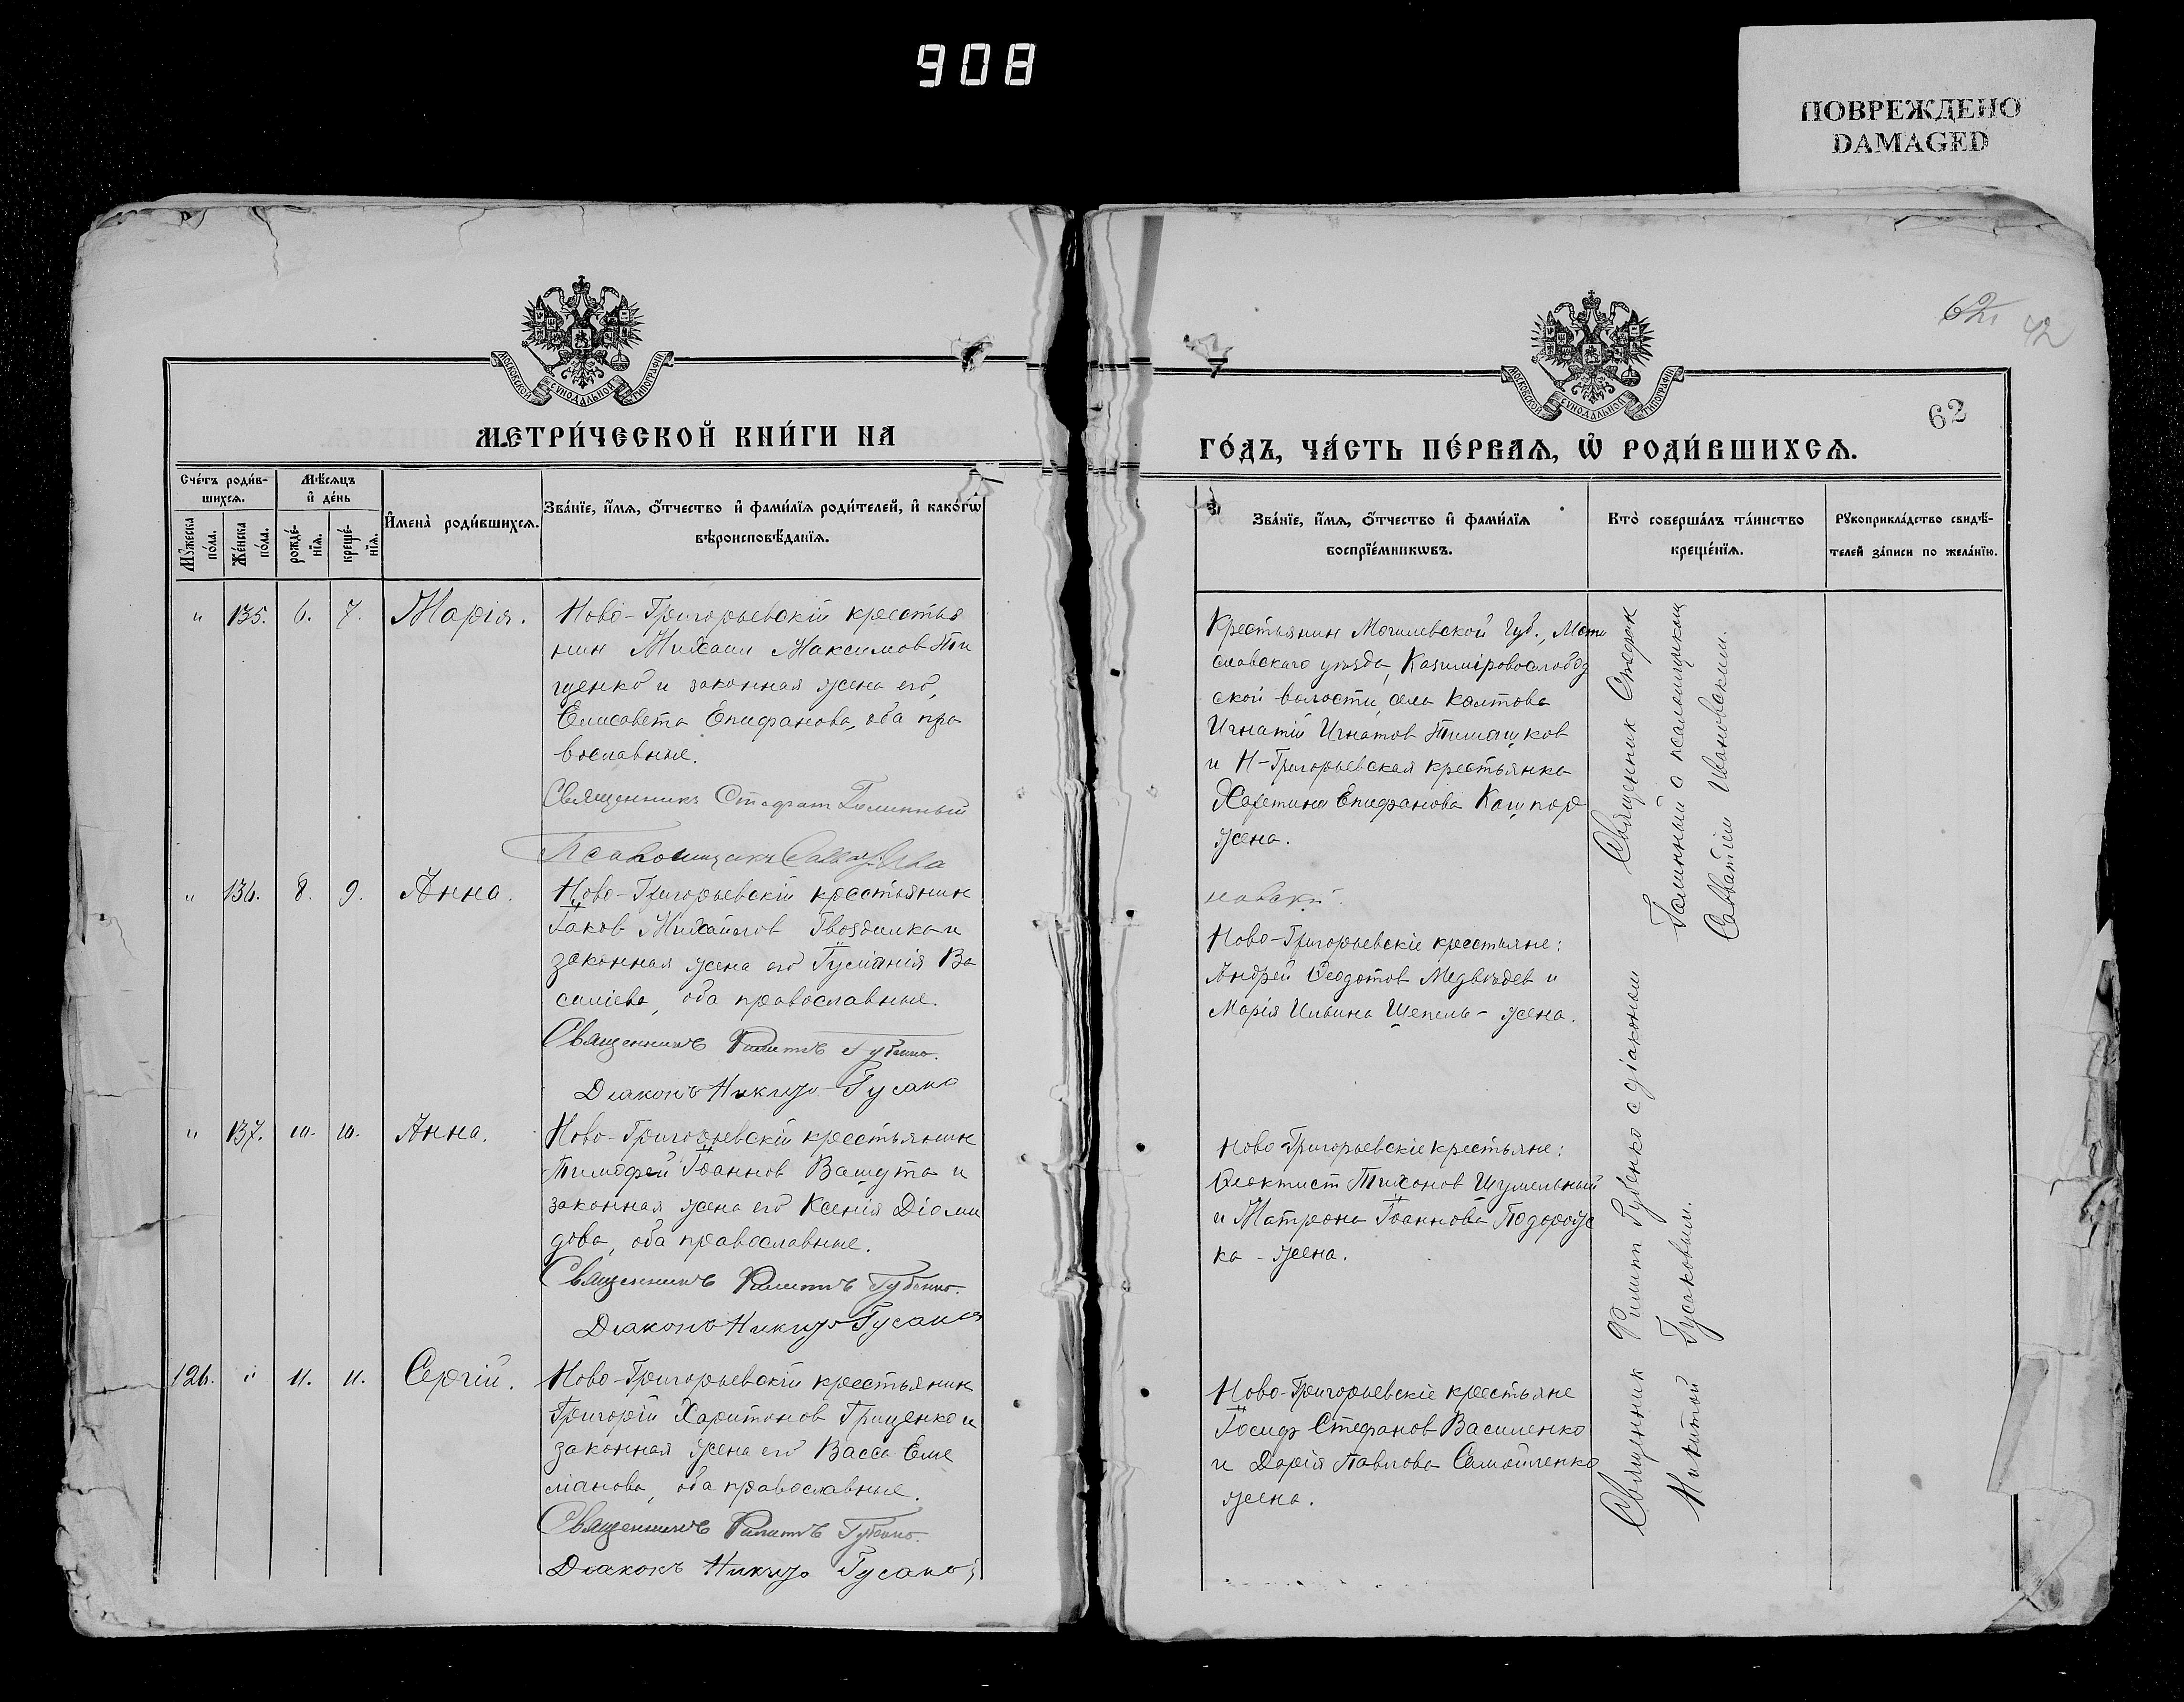 908
ПОВРЕЖДЕНО
DAMAGED
62
42
62
МОСКОВСКОЙ СѴНОДАЛЬНОЙ ТИПОГРАФІИ
МОСКОВСКОЙ СѴНОДАЛЬНОЙ ТИПОГРАФІИ
МЕТРИ́ЧЕСКОЙ КНИ́ГИ НА
ГО́ДЪ, ЧА́СТЬ ПЕ́РВАѦ, Ѡ҆ РОДИ́ВШИХСѦ.
Сче́тъ роди́в-
шихсѧ.
Мѣ́сѧцъ
и҆ де́нь
Мꙋ́жеска по́ла.
Же́нска по́ла.
рожде́-
нїѧ.
креще́-
нїѧ.
И҆мена̀ роди́вшихсѧ.
Зва́нїе, и҆́мѧ, ѻ҆́тчество и҆ фами́лїѧ роди́телей, и҆ како́гѡ
вѣроисповѣ́данїѧ.
Зва́нїе, и҆́мѧ, ѻ҆́тчество и҆ фами́лїѧ
воспрїе́мникѡвъ.
Кто̀ соверша́лъ та́инство
креще́нїѧ.
Рꙋкоприкла́дство свидѣ́-
телей за́писи по жела́нїю.
" 135. 6. 7. Марія.
Ново-Григорьевскій крестья
нин Михаил Максимов Ти
щенко и законная жена его,
Елисавета Епифанова, оба пра
вославные.
Священникъ Стефан Галинный
Псаломщикъ Савва
Крестьянин Могилевской губ., Мсти
славского уѣзда, Казиміровослобод
ской волости, села Колтова
Игнатій Игнатов Тимашков
и Н-Григорьевская крестьянка
Харитина Епифанова Кашпор
жена.
новскій
Священник Стефан
Галинный с псаломщиком
Савватіем Ивановским.
" 136. 8. 9. Анна.
Ново-Григорьевскій крестьянин
Іаков Михайлов Гвоздика и
законная жена его Іуліанія Ва
силіева, оба православные.
Священникъ Филиппъ Губенко.
Діаконъ Никита Гусако
Ново-Григорьевскіе крестьяне:
Андрей Ѳеодотов Медвѣдев и
Марія Ильина Шепель - жена.
" 137. 10. 10. Анна.
Ново-Григорьевскій крестьянин
Тимофей Іоаннов Вашута и
законная жена его Ксенія Діоми
дова, оба православные.
Священникъ Филиппъ Губенко.
Діаконъ Никита Гусако
Ново-Григорьевскіе крестьяне:
Ѳеоктист Тихонов Шумельный
и Матрона Іоаннова Подорож
ка - жена.
126. " 11. 11. Сергій.
Ново-Григорьевскій крестьянин
Григорій Харитонов Гриценко и
законная жена его Васса Еме
ліанова, оба православные.
Священникъ Филиппъ Губенко.
Діаконъ Никита Гусако
Ново-Григорьевскіе крестьяне
Іосиф Стефанов Василенко
и Дарія Павлова Самойленко
жена.
Священник Филипп Губенко с діаконом
Никитой Гусаковым.